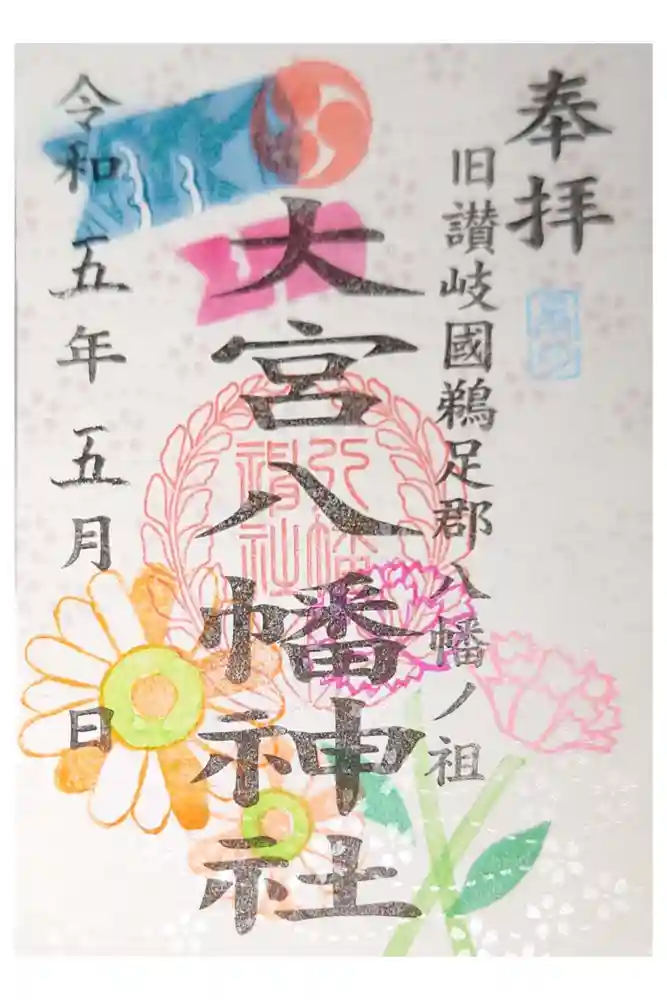 奉拝
旧讃岐國鵜足郡八幡ノ祖
大宮八幡神社
八幡神社
令和五年五月 日